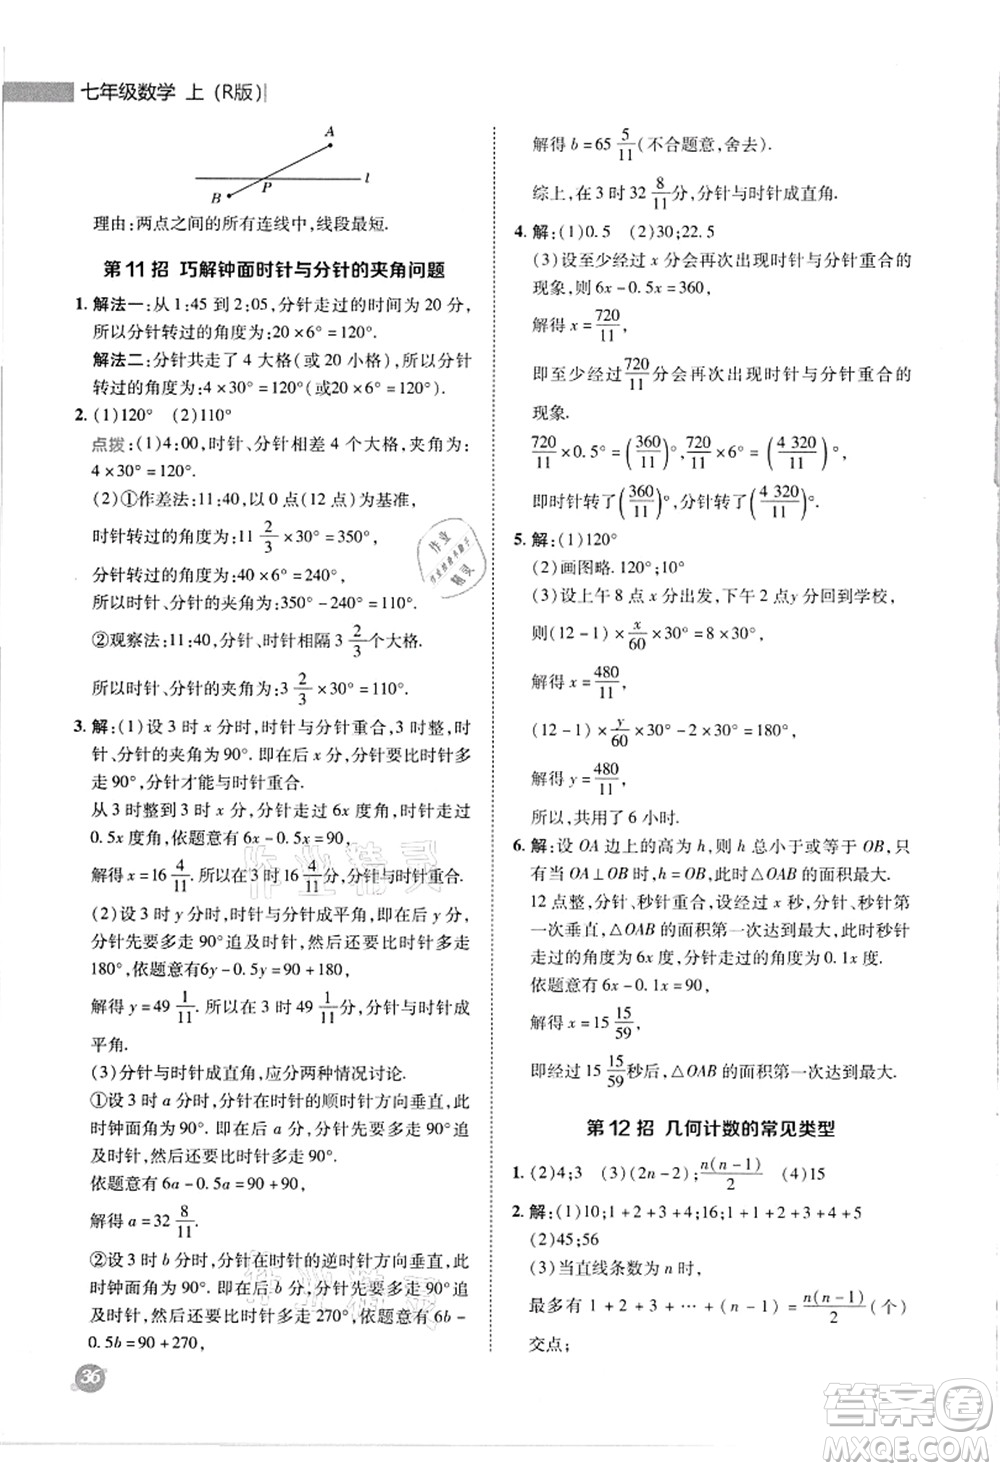 七年级数学 上(R版)
A
B P l
理由:两点之间的所有连线中,线段最短.
第 11 招 巧解钟面时针与分针的夹角问题
1. 解法一:从 1:45 到 2:05,分针走过的时间为 20 分,
所以分针转过的角度为:20×6°=120°.
解法二:分针共走了 4 大格(或 20 小格),所以分针
转过的角度为:4×30°=120°(或20×6°=120°).
2. (1)120° (2)110°
点拨:(1)4:00,时针、分针相差 4 个大格,夹角为:
4×30°=120°.
(2)①作差法:11:40,以 0 点(12 点)为基准,
时针转过的角度为:11 2/3 ×30°=350°,
分针转过的角度为:40×6°=240°,
所以时针、分针的夹角为:350°-240°=110°.
②观察法:11:40,分针、时针相隔 3 2/3 个大格.
所以时针、分针的夹角为:3 2/3 ×30°=110°.
3. 解:(1)设 3 时 x 分时,时针与分针重合,3 时整,时
针、分针的夹角为 90°. 即在后面,分针要比时针多
走 90°,分针才能与时针重合.
从 3 时整到 3 时 x 分,分针走过 6x 度角,时针走过
0.5x 度角,依题意有 6x-0.5x=90,
解得 x=16 4/11. 所以在 3 时16 4/11分,时针与分针重合.
(2)设 3 时 y 分时,分针与时针成平角,此时钟面中,
分针先要多走 90°追及时针,然后还要比时针多走
180°,依题意有6y-0.5y=90+180,
解得 y=49 1/11. 所以在 3 时 49 1/11 分,分针与时针成
平角.
(3)分针与时针成直角,应分两种情况讨论.
①设 3 时 a 分时,分针在时针的顺时针方向垂直,此
时钟面角为 90°. 即在后面,分针先要多走 90°追
及时针,然后还要比时针多走 90°,
依题意有 6a-0.5a=90+90,
解得 a=32 8/11.
②设 3 时 b 分时,分针在时针的逆时针方向垂直,此
时钟面角为 90°. 即在后面,分针先要多走 90°追
及时针,然后还要比时针多走 270°,依题意有 6b-
0.5b=90+270,
36
解得 b=65 5/11(不合题意,舍去).
综上,在 3 时 32 8/11分,分针与时针成直角.
4. 解:(1)0.5 (2)30;22.5
(3)设至少还有 x 分会再次出现时针与分针重合的
现象,所以 6x-0.5x=360,
解得 x=720/11,
即至少还有720/11分会再次出现时针与分针重合的
现象.
720/11×0.5°=(360/11)°,720/11×6°=(4 320/11)°,
即时针转了(360/11)°,分针转了(4 320/11)°.
5. 解:(1)120°
(2)画图略. 120°+30°=150°
(3)设上午 8 点 x 分出发,下午 2 点y 分回到学校,
则(12-1)×x/60×30°=8×30°,
解得 x=480/11,
(12-1)×y/60×30°=2×30°+180°,
解得 y=480/11,
所以,共用了 6 小时.
6. 解:设 OA 边上的高为 h,则 h 总小于或等于 OB,只
有当 OA⊥OB 时,h=OB,此时△OAB 的面积最大.
12 点整,分针、秒针重合,设经过 x 秒,分针、秒针第
一次垂直,△OAB 的面积第一次达到最大,此时秒针
走过的角度为 6x 度,分针走过的角度为 0.1x 度.
依题意有 6x-0.1x=90,
解得 x=15 15/59,
即经过 15 15/59秒后,△OAB 的面积第一次达到最大.
第 12 招 几何计数的常见类型
1. (2)4;3 (3)(2n-2);n(n-1)/2 (4)15
2. 解:(1)10;1+2+3+4;15;1+1+2+3+4+5
(2)45;56
(3)当直线条数为 n 时,
最多有 1+2+3+…+(n-1)=n(n-1)/2(个)
交点;
作业
精灵
作业精灵
作业精灵
答案圈
MXQE.COM